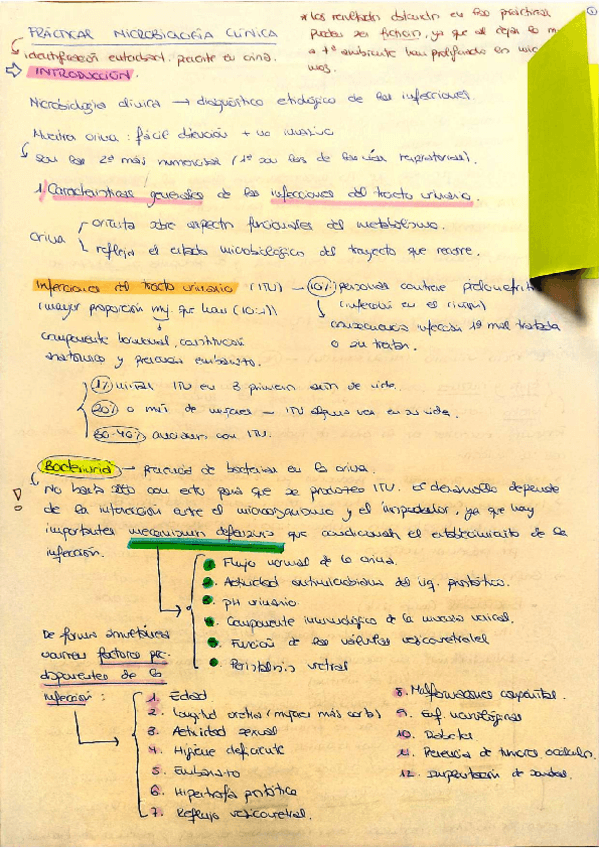 PRÁCTICAS MICROBIOLOGÍA CLÍNICA
* Los resultados obtenidos en las prácticas
pueden ser ficticios, ya que al dejar la
a tª ambiente han proliferado
identificación enterobact. presente en orina.
INTRODUCCIÓN.
Microbiología clínica → diagnóstico etiológico de las infecciones.
Muestra orina: fácil obtención + no invasivo
son las 2ª más numerosas (1ª son las de las vías respiratorias).
1. Características generales de las infecciones del tracto urinario.
orina
orienta sobre aspectos funcionales del metabolismo.
refleja el estado microbiológico del trayecto que recorre.
Infecciones del tracto urinario (ITU) — 10% personas contrae pielonefritis
(mayor proporción muj. que hom (10:1))
(infección en el riñón)
consecuencia infección 1ª mal tratada
o su tratam.
componente hormonal, constitución
anatómica y presencia embarazo.
1% niños ITU en 3 primeros años de vida.
20% o más de mujeres — ITU alguna vez en su vida.
30-40% ancianos con ITU.
Bacteriuria → presencia de bacterias en la orina.
No basta sólo con esto para que se produzca ITU. El desarrollo depende
de la interacción entre el microorganismo y el hospedador, ya que hay
importantes mecanismos defensivos que condicionan el establecimiento de la
infección.
1. Flujo normal de la orina.
2. Actividad antimicrobiana del líq. prostático.
3. pH urinario
4. Componente inmunológico de la mucosa vesical.
5. Función de las válvulas vesicoureterales
6. Peristalsis uretral
De forma simultánea
ocurren factores pre-
disponentes de la
infección:
1. Edad
2. Longitud uretra (mujeres más corta)
3. Actividad sexual
4. Higiene deficiente
5. Embarazo
6. Hipertrofia prostática
7. Reflujo vesicoureteral.
8. Malformaciones congénitas.
9. Enf. neurológicas
10. Diabetes
11. Presencia de tumores
12. Implantación de sondas.